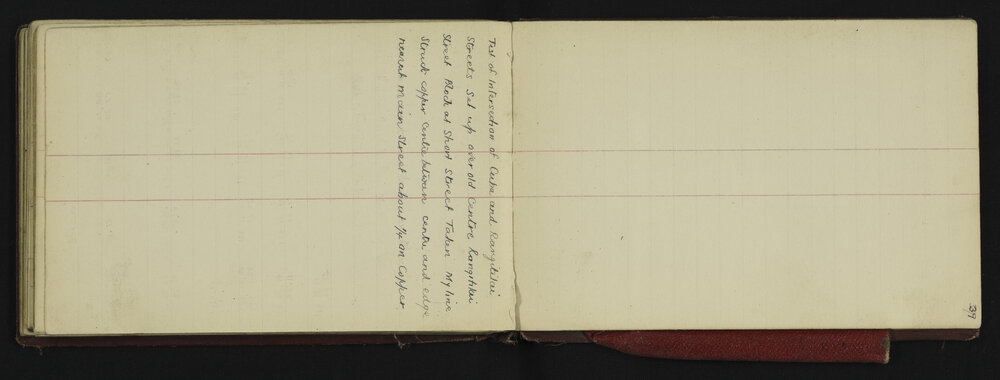 Test of Intersection of Cuba and Rangitikei
Streets Set up over old Centre Rangitikei
Street Block at Short Street Taken My line
Struck copper centre between centre and edge
nearest main Street about 1/4 on Copper
39